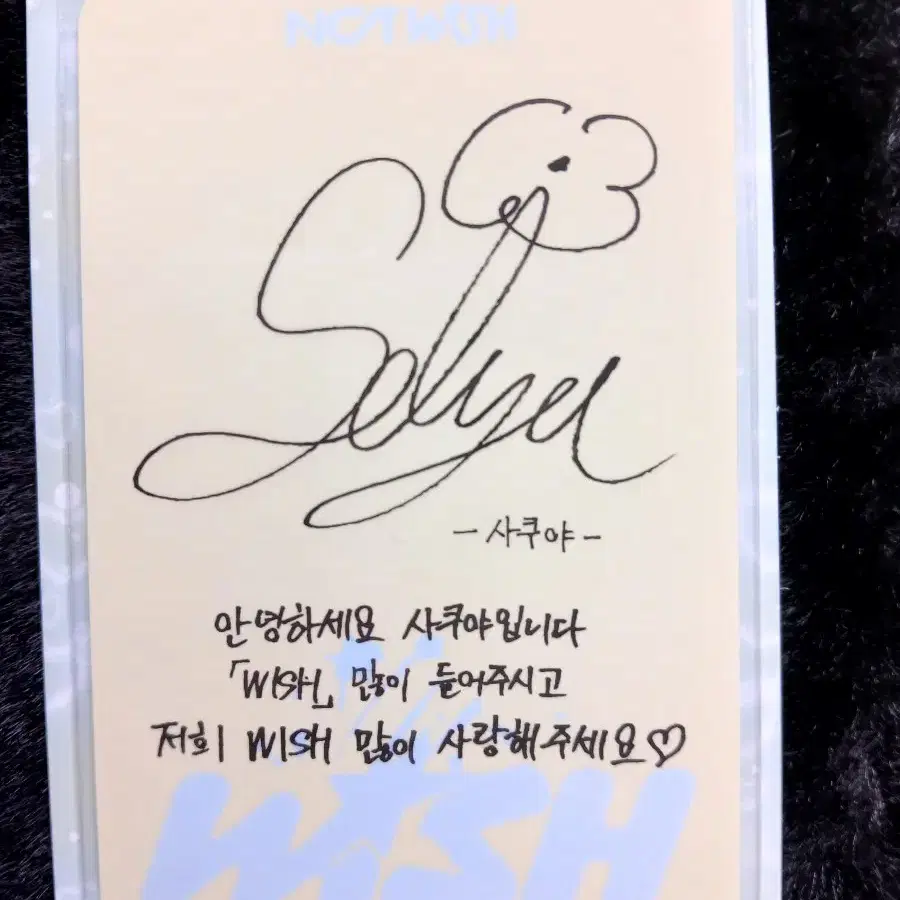 NCT WISH
-사쿠야-
안녕하세요 사쿠야입니다
「WISH」 많이 들어주시고
저희 WISH 많이 사랑해주세요♡
WISH